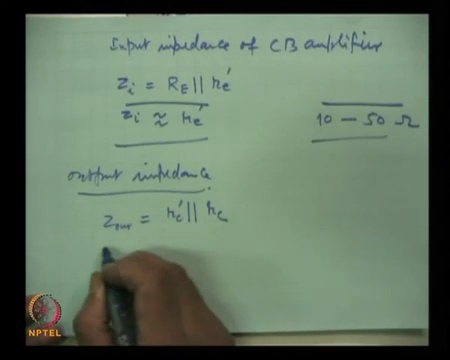 Input impedance of CB amplifier
Zi = RE || re'
Zi ≈ re'
10 – 50 Ω
output impedance
Zout = rc' || rc
NPTEL